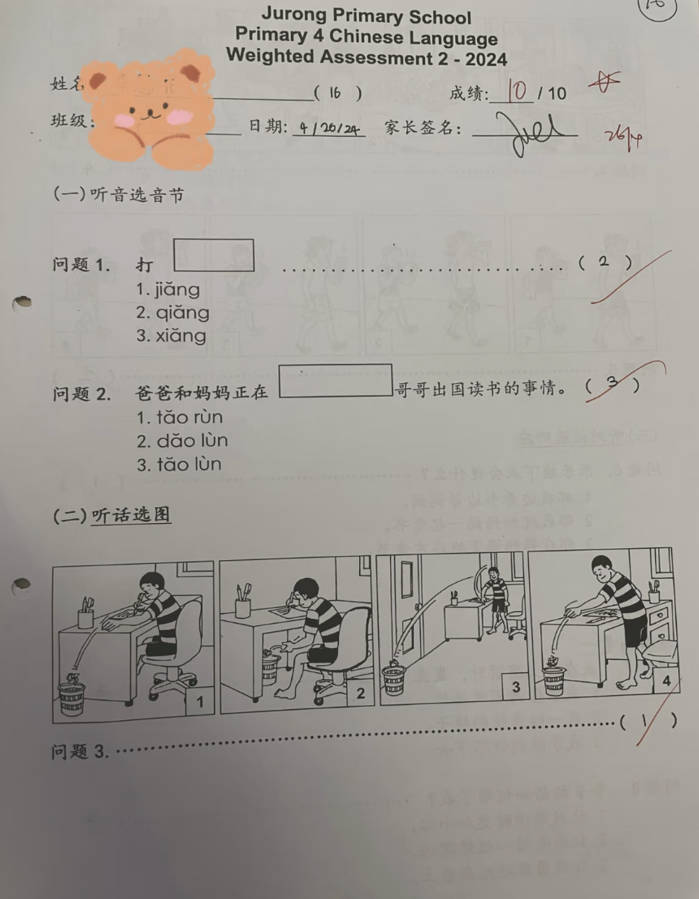 Jurong Primary School
Primary 4 Chinese Language
Weighted Assessment 2 - 2024
姓名 ( 16 ) 成绩: 10 / 10
班级: 日期: 4/26/24 家长签名: 26/4
(一) 听音选音节
问题 1. 打 ( 2 )
1. jiǎng
2. qiǎng
3. xiǎng
问题 2. 爸爸和妈妈正在 哥哥出国读书的事情。 ( 3 )
1. tǎo rùn
2. dǎo lùn
3. tǎo lùn
(二) 听话选图
1 2 3 4
问题 3. ( 1 )